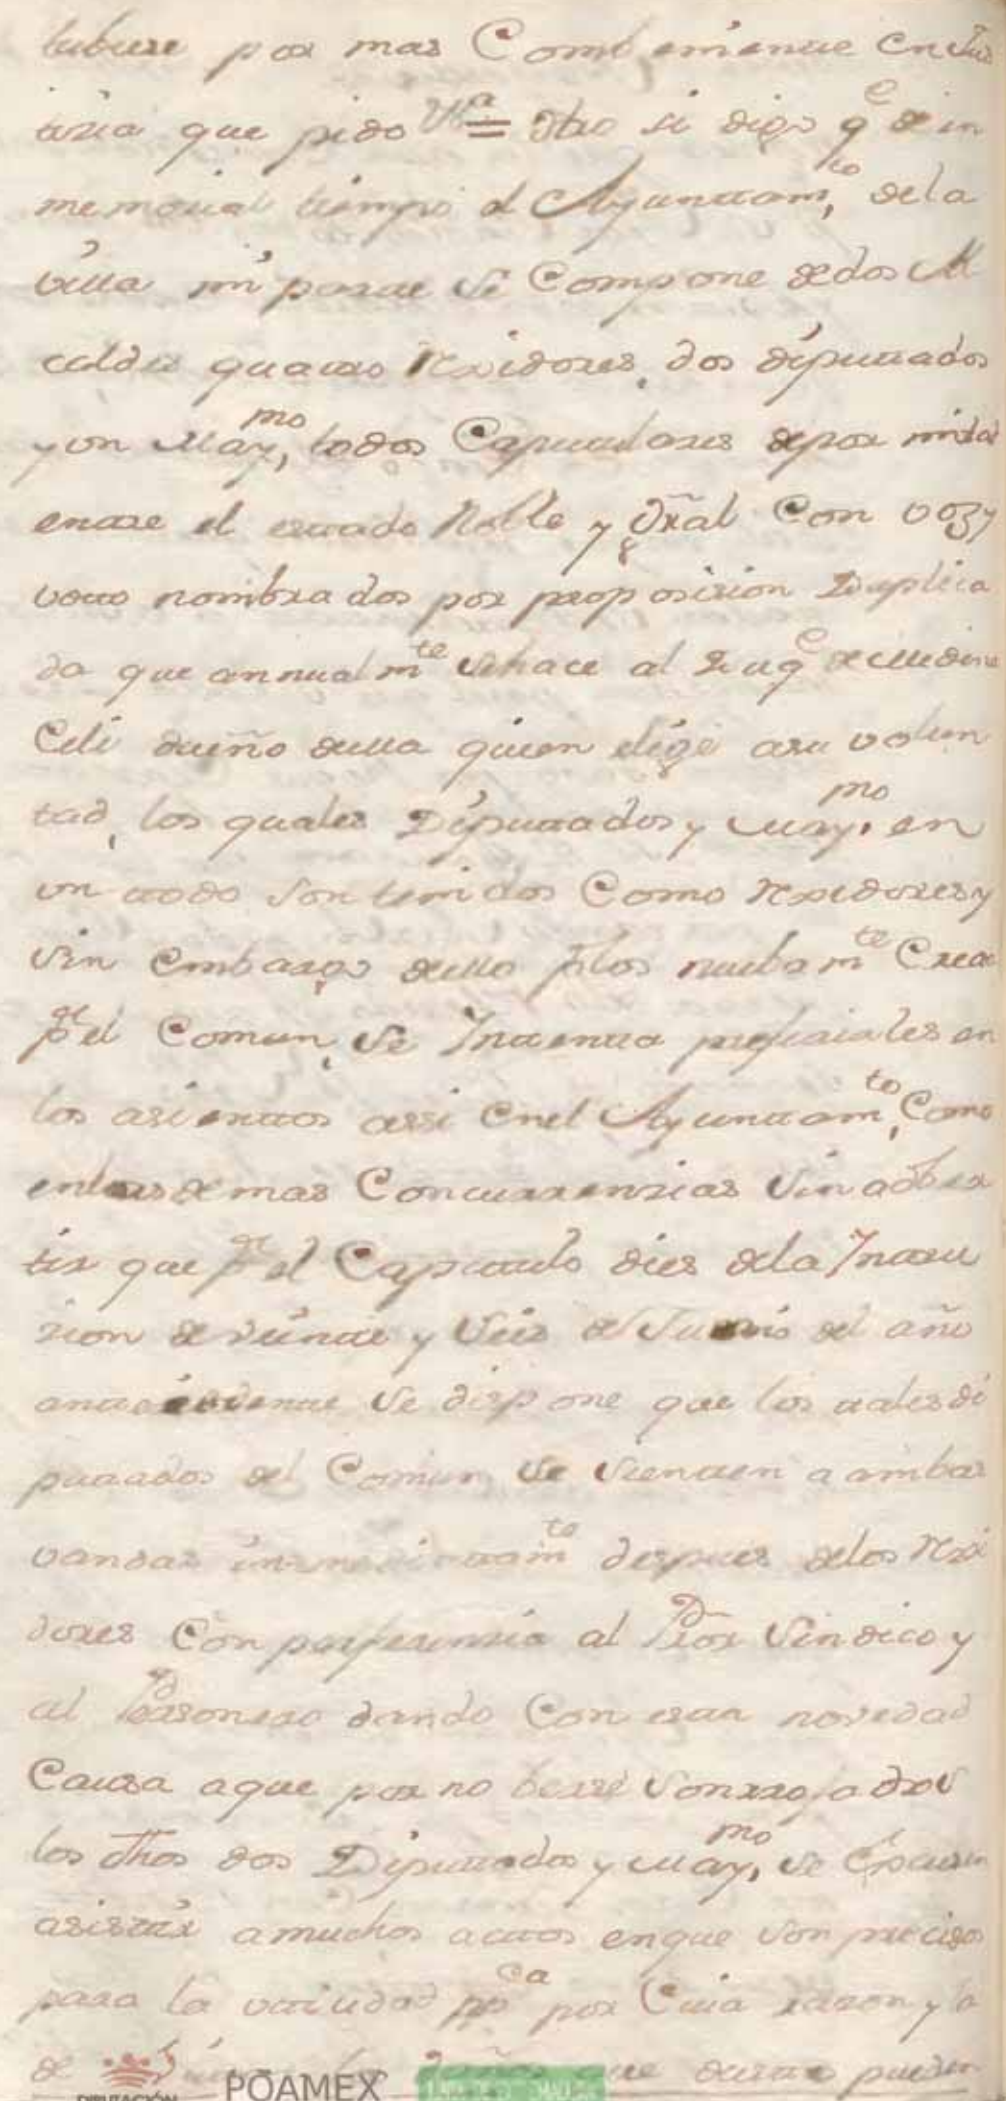 tubiere por mas Combeniente en Jus
ticia que pido Vtª = Otro si digo qe de in
memorial tiempo el Ayuntamto, de la
villa mi parte se Compone de dos Al
caldes quatro Rexidores, dos diputados
y un Maymo, todos Capitulares de por mitad
entre el estado Noble y Gral Con voz y
voto nombrados por proposision Duplica
da que annualmte se hace al Duqe de Medina
Celi dueño de ella quien elige a su volun
tad, los quales Diputados y Maymo, en
un todo son tenidos Como Rexidores y
sin embargo de ello pr los nuebamte Creados
pr el Comun, se Intenta preferirles en
los asientos assi en el Ayuntamto, Como
en las demas Concurrenzias sin adber
tir que pr el Capitulo dies de la Instru
zion de veinte y seis de Junio del año
antezedente se dispone que los tales di
putados del Comun se sienten a ambas
vandas inmediatamte despues de los Rexi
dores Con preferenzia al Pror Sindico y
al Personero dando Con esta novedad
Causa a que por no berse sonrrojados
los dhos dos Diputados y Maymo, se Escusen
asistir a muchos actos en que son precisos
para la utiudad ppca por Cuia razon y la
de que
DIPUTACIÓN POAMEX